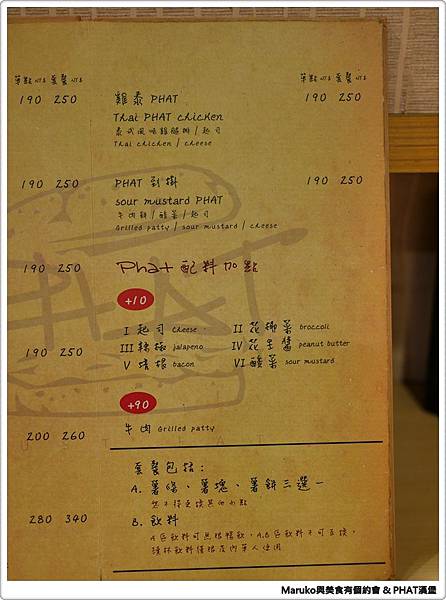 單點NT$ 套餐NT$
190 250
190 250
190 250
190 250
200 260
280 340
單點NT$ 套餐NT$
雞泰 PHAT 190 250
Thai PHAT chicken
泰式風味雞腿排 / 起司
Thai chicken / cheese
PHAT 到掛 190 250
sour mustard PHAT
牛肉餅 / 酸菜 / 起司
Grilled patty / sour mustard / cheese
Phat 配料加點
+10
I 起司 cheese II 花椰菜 broccoli
III 辣椒 jalapeno IV 花生醬 peanut butter
V 培根 bacon VI 酸菜 sour mustard
+90
牛肉 Grilled patty
套餐包括：
A. 薯條、薯塊、薯餅三選一
恕不接受讓其他小點
B. 飲料
A區飲料可無限暢飲，A.B區飲料不可互換，
續杯飲料僅限店內單人使用
Maruko與美食有個約會 & PHAT漢堡